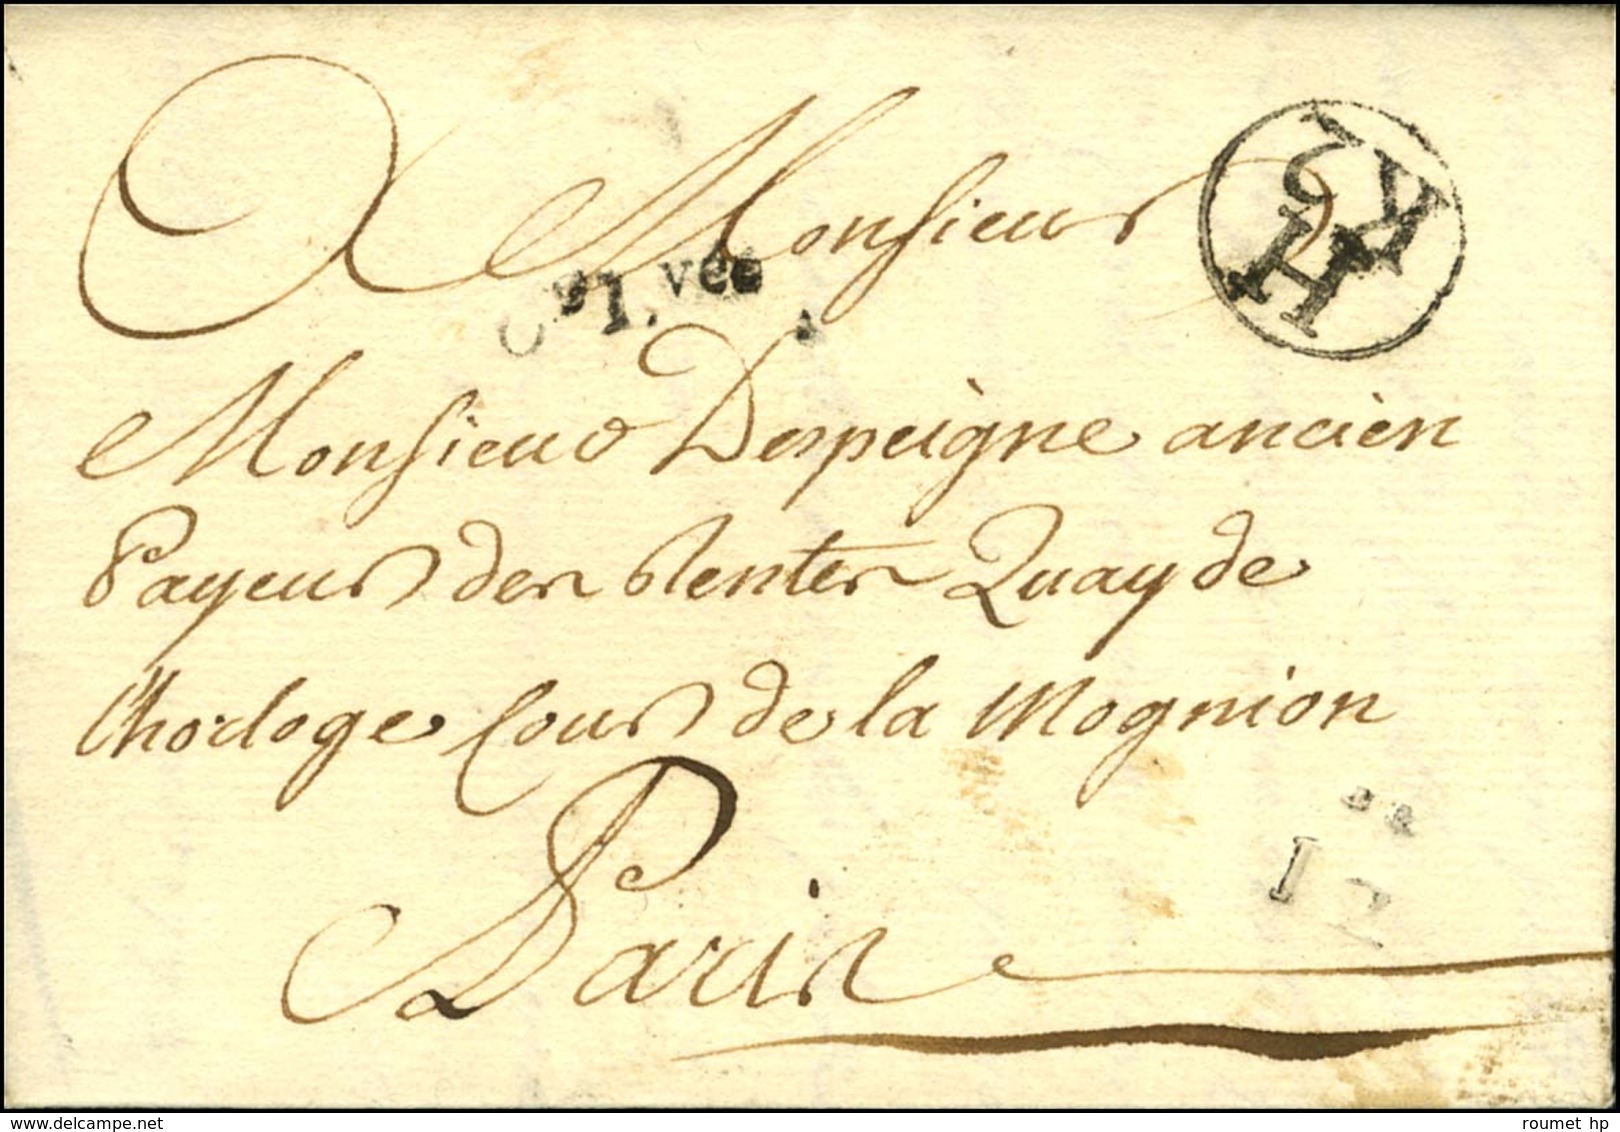 A Monsieur
Monsieur Despeigne ancien
Payeur des Rentes Quay de
l'horloge Cour de la Mognion
Paris
1.vée
A2
H
I
roumet hp
delcampe.net